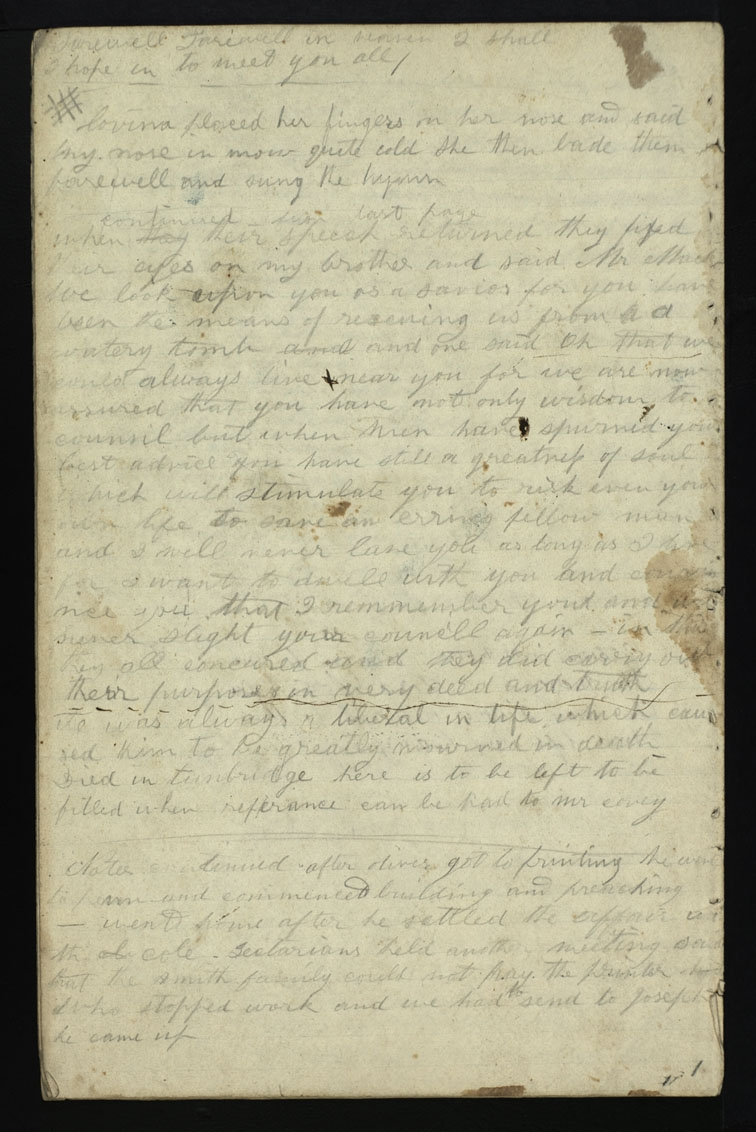 Farewell Farewell in heaven I shall
I hope in to meet you all
lovina placed her fingers on her nose and said
my nose in now quite cold she then bade them
farewell and sung the hymn
continued last page
when they their speech returned they fixed
their eyes on my brother and said Mr Mack
we look upon you as a savior for you have
been the means of rescuing us from a
watery tomb and and one said Oh that we
could always live near you for we are now
assured that you have not only wisdom to
council but when men have spurned your
best advice you have still a greatness of soul
which will stimulate you to risk even your
own life to save an erring fellow man
and I will never leave you as long as I live
for I want to dwell with you and convi
nce you that I remmember you and
never slight your councell again - in this
they all concured and they did carry out
their purposes in very deed and truth
He was always a liberal in life which cau
sed him to be greatly mourned in death
Died in tunbridge here is to be left to be
filled when referance can be had to mr covey
after oliver got to printing he went
to and commenced building and preaching
- went home after he settled the affair wi
th cole - Sectarians held another meeting said
that the smith family could not pay the printer
who stopped work and we had to send to Joseph
he came up
1